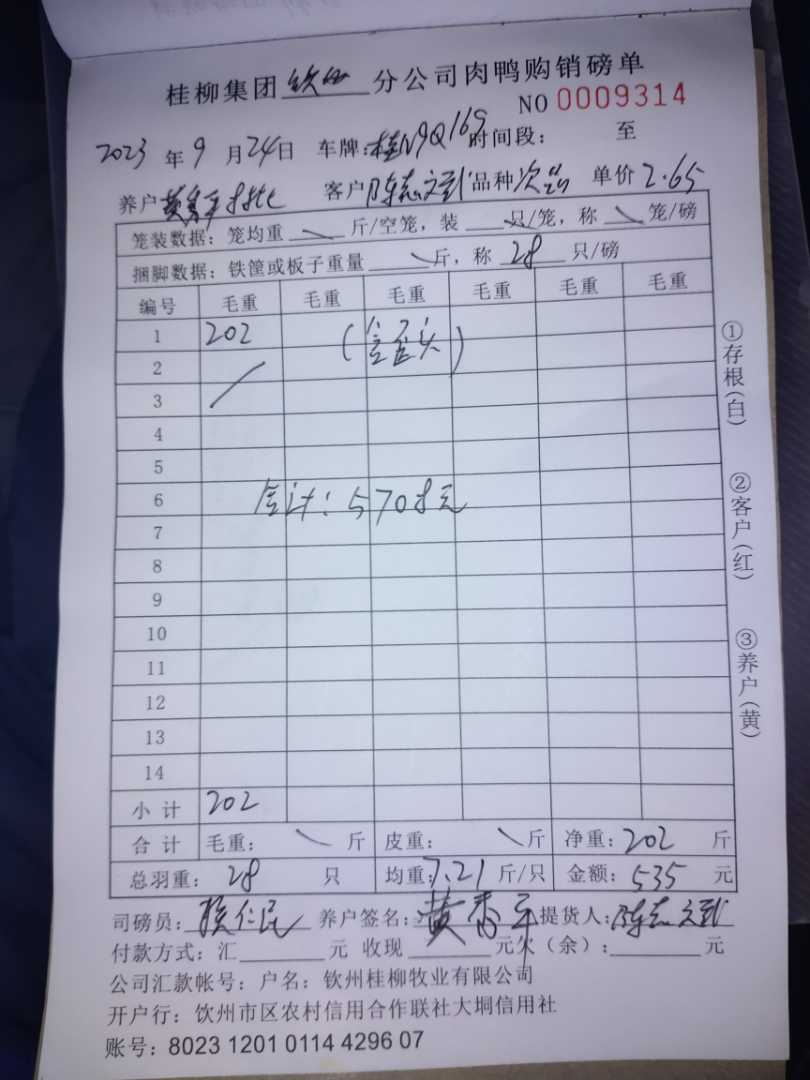 桂柳集团钦州分公司肉鸭购销磅单
NO 0009314
2023年9月24日 车牌:桂N9Q169时间段: 至
养户 客户陈志文 品种次品 单价2.65
笼装数据:笼均重 斤/空笼,装 只/笼,称 笼/磅
捆脚数据:铁筐或板子重量 斤,称 28 只/磅
编号 毛重 毛重 毛重 毛重 毛重 毛重
1 202 (含歪头)
2
3
4
5
6 合计:570 元
7
8
9
10
11
12
13
14
小计 202
合计 毛重: 斤 皮重: 斤 净重:202 斤
总羽重: 28 只 均重:7.21 斤/只 金额:535 元
司磅员: 仁民 养户签名:黄 平 提货人:陈志文
付款方式:汇 元 收现 元欠(余): 元
公司汇款帐号:户名:钦州桂柳牧业有限公司
开户行:饮州市区农村信用合作联社大垌信用社
账号:8023 1201 0114 4296 07
①存根(白)
②客户(红)
③养户(黄)